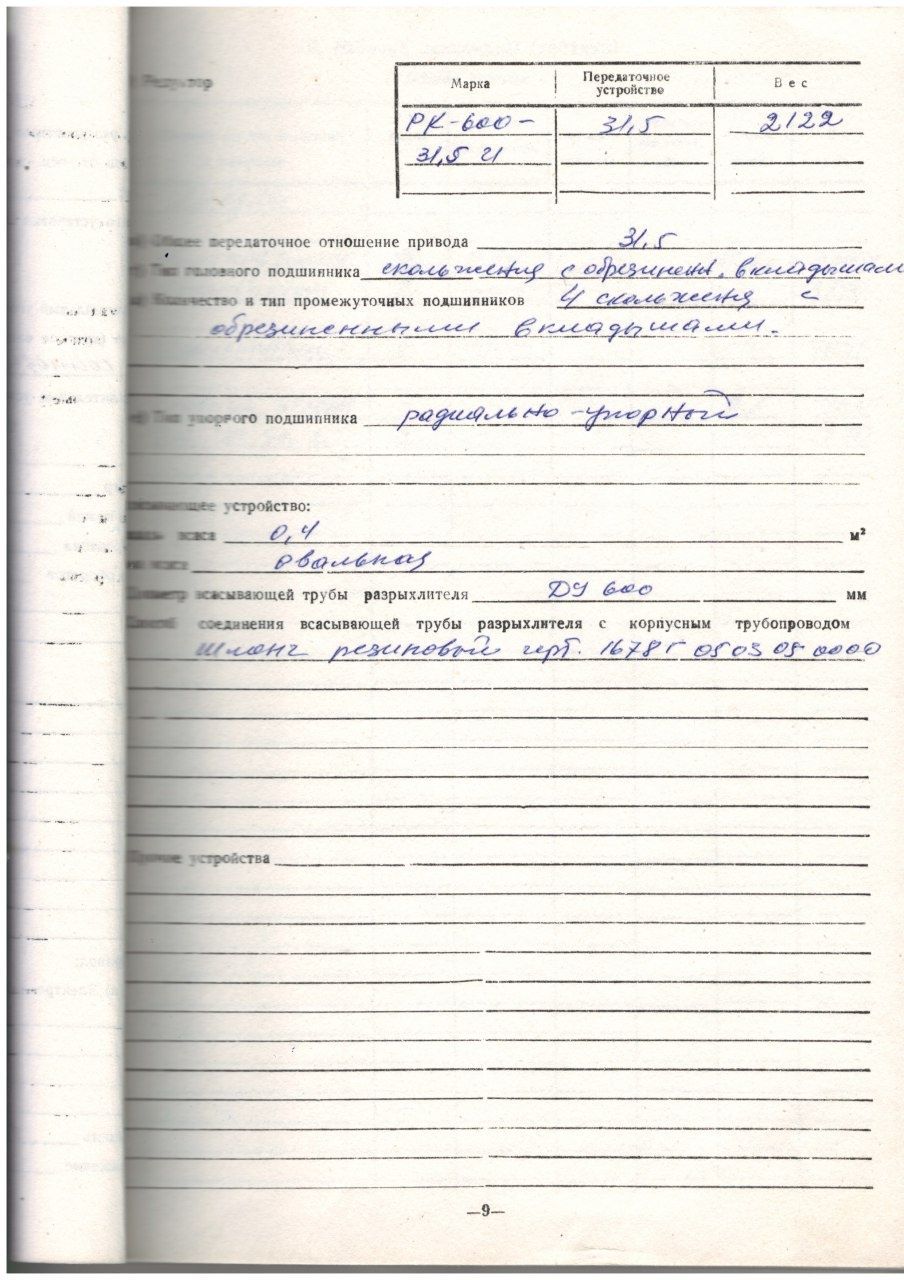 Редуктор
Марка Передаточное устройство Вес
РК-600- 31,5 2122
31,5 И
Общее передаточное отношение привода 31,5
Тип головного подшипника скольжения с обрезинен. вкладышам
Количество и тип промежуточных подшипников 4 скольженя с
обрезиненными вкладышами.
Тип упорного подшипника радиально-упорный
устройство:
всаса 0,4 м²
овальная
Диаметр всасывающей трубы разрыхлителя ДУ 600 мм
Способ соединения всасывающей трубы разрыхлителя с корпусным трубопроводом
Шланг резиновый черт. 1678Г 05 03 05 0000
Прочие устройства
—9—